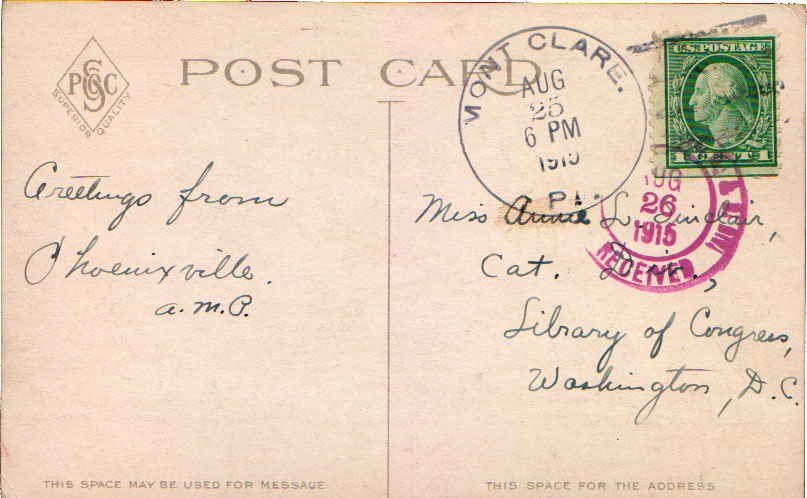 PSCC
SUPERIOR QUALITY
POST CARD
MONT CLARE.
AUG
25
6 PM
1915
PA.
U.S. POSTAGE
AUG
26
1915
RECEIVED
Greetings from
Phoenixville.
a.m.P.
Miss Annie L. Sinclair,
Cat. Div.,
Library of Congress,
Washington, D.C.
THIS SPACE MAY BE USED FOR MESSAGE
THIS SPACE FOR THE ADDRESS